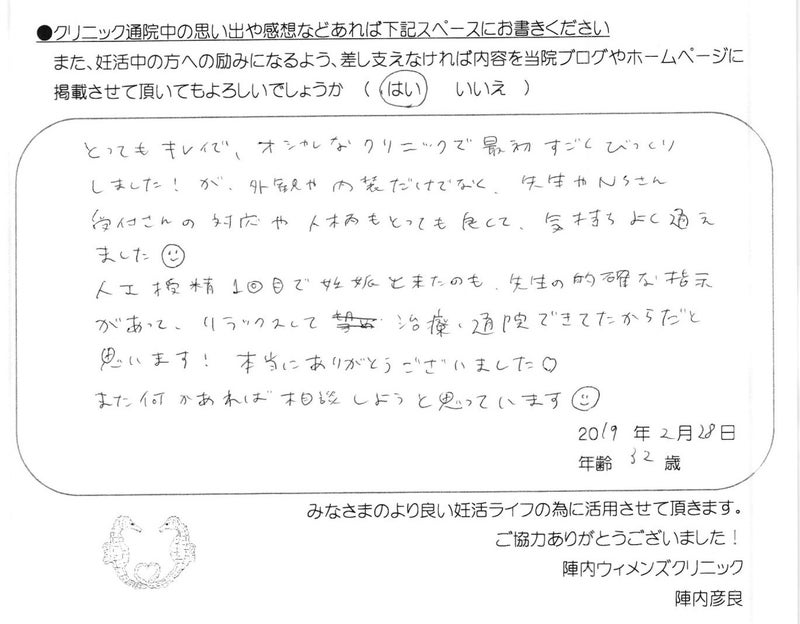 ●クリニック通院中の思い出や感想などあれば下記スペースにお書きください
また、妊活中の方への励みになるよう、差し支えなければ内容を当院ブログやホームページに
掲載させて頂いてもよろしいでしょうか （ はい いいえ ）
とってもキレイで、オシャレなクリニックで最初すごくびっくり
しました！が、外観や内装だけでなく、先生やNsさん
受付さんの対応や人柄もとっても良くて、気持ちよく通え
ました
人工授精1回目で妊娠出来たのも、先生の的確な指示
があって、リラックスして 治療・通院できてたからだと
思います！ 本当にありがとうございました♡
また何かあれば相談しようと思っています
2019 年 2 月 28 日
年齢 32 歳
みなさまのより良い妊活ライフの為に活用させて頂きます。
ご協力ありがとうございました！
陣内ウィメンズクリニック
陣内彦良